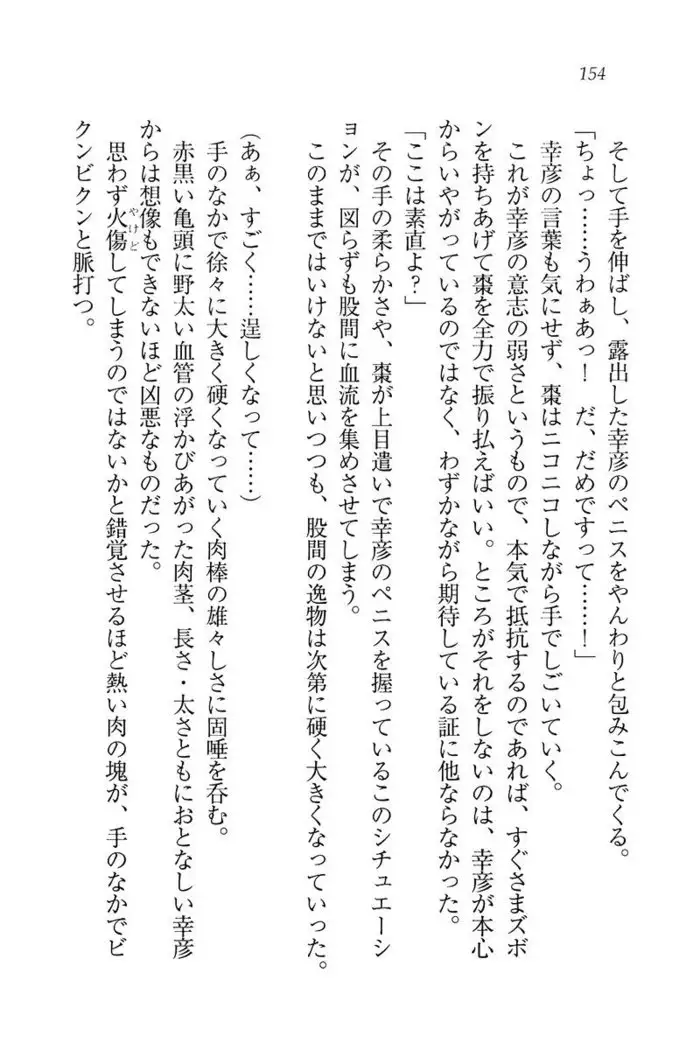 154
そして手を伸ばし、露出した幸彦のペニスをやんわりと包みこんでくる。
「ちょっ……うわぁあっ！　だ、だめですって……！」
幸彦の言葉も気にせず、棗はニコニコしながら手でしごいていく。
これが幸彦の意志の弱さというもので、本気で抵抗するのであれば、すぐさまズボ
ンを持ちあげて棗を全力で振り払えばいい。ところがそれをしないのは、幸彦が本心
からいやがっているのではなく、わずかながら期待している証に他ならなかった。
「ここは素直よ？」
その手の柔らかさや、棗が上目遣いで幸彦のペニスを握っているこのシチュエーシ
ョンが、図らずも股間に血流を集めさせてしまう。
このままではいけないと思いつつも、股間の逸物は次第に硬く大きくなっていった。
（あぁ、すごく……逞しくなって……）
手のなかで徐々に大きく硬くなっていく肉棒の雄々しさに固唾を呑む。
赤黒い亀頭に野太い血管の浮かびあがった肉茎、長さ・太さともにおとなしい幸彦
からは想像もできないほど凶悪なものだった。
思わず火傷やけどしてしまうのではないかと錯覚させるほど熱い肉の塊が、手のなかでビ
クンビクンと脈打つ。